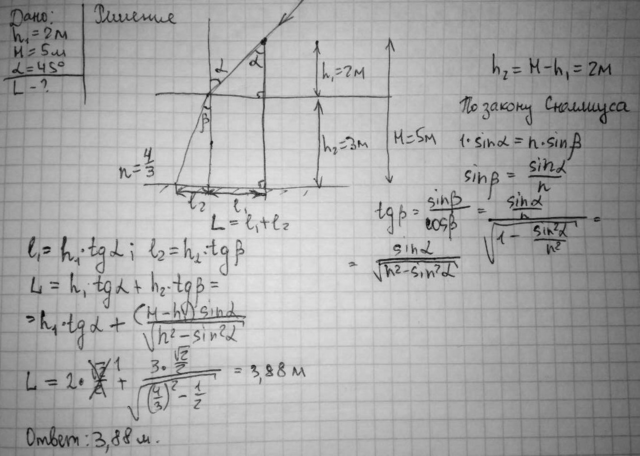 Дано:
h₁=2м
H=5м
α=45°
L-?
Решение
α
α
β
h₁=2м
h₂=3м
H=5м
n=4/3
l₂ l₁
L=l₁+l₂
h₂=H-h₁=2м
По закону Снеллиуса
1·sinα=n·sinβ
sinβ=sinα/n
tgβ=sinβ/cosβ=(sinα/n)/√(1-sin²α/n²)=
=sinα/√(n²-sin²α)
l₁=h₁·tgα; l₂=h₂·tgβ
L=h₁tgα+h₂·tgβ=
=h₁·tgα+(H-h₁)sinα/√(n²-sin²α)
L=2·1+(3·√2/2)/√((4/3)²-1/2)=3,88м
Ответ: 3,88м.